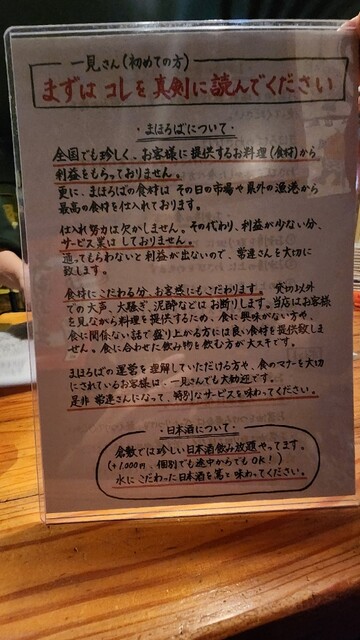 一見さん(初めての方)
まずは コレを 真剣に 読んでください
・まほろばについて・
全国でも珍しく、お客様に提供するお料理(食材)から
利益をもらっておりません。
更に、まほろばの食材は その日の市場や県外の漁港から
最高の食材を仕入れております。
仕入努力は欠かしません。その代わり、利益が少ない分、
サービス業は しておりません。
通ってもらわないと利益が出ないので、常連さんを大切に
致します。
食材にこだわる分、お客様にもこだわります。 貸切以外
での大声、大騒ぎ、泥酔などは お断りします。当店はお客様
を見ながら料理を提供するため、食に興味がない方や、
食に関係ない話で盛り上がる方には良い食材を提供致しま
せん。食に合わせた飲み物を飲む方が大スキです。
まほろばの運営を理解していただける方や、食のマナーを大切
にされているお客様は、一見さんでも大歓迎です。
是非 常連さんになって、特別なサービスを味わってください。
・日本酒について・
倉敷では珍しい日本酒飲み放題やってます。
(+1,000円、個別でも途中からでもOK!)
水にこだわった日本酒を篤と味わってください。